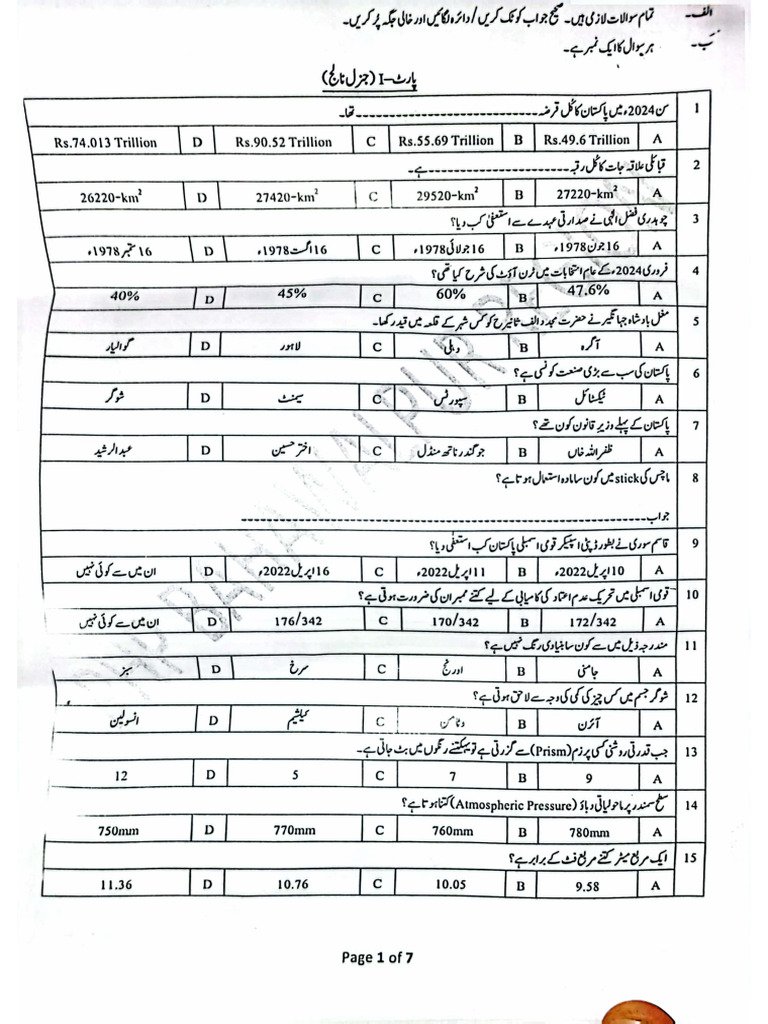 الف۔ تمام سوالات لازمی ہیں۔ صحیح جواب کو ٹک کریں/دائرہ لگائیں اور خالی جگہ پُر کریں۔
ب۔ ہر سوال کا ایک نمبر ہے۔
پارٹ-I (جنرل نالج)
1 سن 2024ء میں پاکستان کا کُل قرضہ ------------------------ تھا۔
A Rs.49.6 Trillion B Rs.55.69 Trillion C Rs.90.52 Trillion D Rs.74.013 Trillion
2 قبائلی علاقہ جات کا کُل رقبہ ------------------ ہے۔
A 27220-km² B 29520-km² C 27420-km² D 26220-km²
3 چوہدری فضل الٰہی نے صدارتی عہدے سے استعفیٰ کب دیا؟
A 16 جون 1978ء B 16 جولائی 1978ء C 16 اگست 1978ء D 16 ستمبر 1978ء
4 فروری 2024ء کے عام انتخابات میں ٹرن آؤٹ کی شرح کیا تھی؟
A 47.6% B 60% C 45% D 40%
5 مغل بادشاہ جہانگیر نے حضرت مجدد الف ثانیؒ کو کس شہر کے قلعہ میں قید رکھا۔
A آگرہ B دہلی C لاہور D گوالیار
6 پاکستان کی سب سے بڑی صنعت کونسی ہے؟
A ٹیکسٹائل B سپورٹس C سیمنٹ D شوگر
7 پاکستان کے پہلے وزیرِ قانون کون تھے؟
A ظفر اللہ خاں B جوگندر ناتھ منڈل C اختر حسین D عبدالرشید
8 ماچس کی stick میں کون سا مادہ استعمال ہوتا ہے؟
جواب ------------------------------------------------
9 قاسم سوری نے بطور ڈپٹی اسپیکر قومی اسمبلی پاکستان کب استعفیٰ دیا؟
A 10 اپریل 2022ء B 11 اپریل 2022ء C 16 اپریل 2022ء D ان میں سے کوئی نہیں
10 قومی اسمبلی میں تحریک عدم اعتماد کی کامیابی کے لیے کتنے ممبران کی ضرورت ہوتی ہے؟
A 172/342 B 170/342 C 176/342 D ان میں سے کوئی نہیں
11 مندرجہ ذیل میں سے کون سا بنیادی رنگ نہیں ہے؟
A جامنی B اورنج C سرخ D سبز
12 شوگر جسم میں کس چیز کی کمی کی وجہ سے لاحق ہوتی ہے؟
A آئرن B وٹامن C کیلشیم D انسولین
13 جب قدرتی روشنی کسی پرزم (Prism) سے گزرتی ہے تو یہ کتنے رنگوں میں بٹ جاتی ہے۔
A 9 B 7 C 5 D 12
14 سطح سمندر پر ماحولیاتی دباؤ (Atmospheric Pressure) کتنا ہوتا ہے؟
A 780mm B 760mm C 770mm D 750mm
15 ایک مربع میٹر کتنے مربع فٹ کے برابر ہے؟
A 9.58 B 10.05 C 10.76 D 11.36
Page 1 of 7